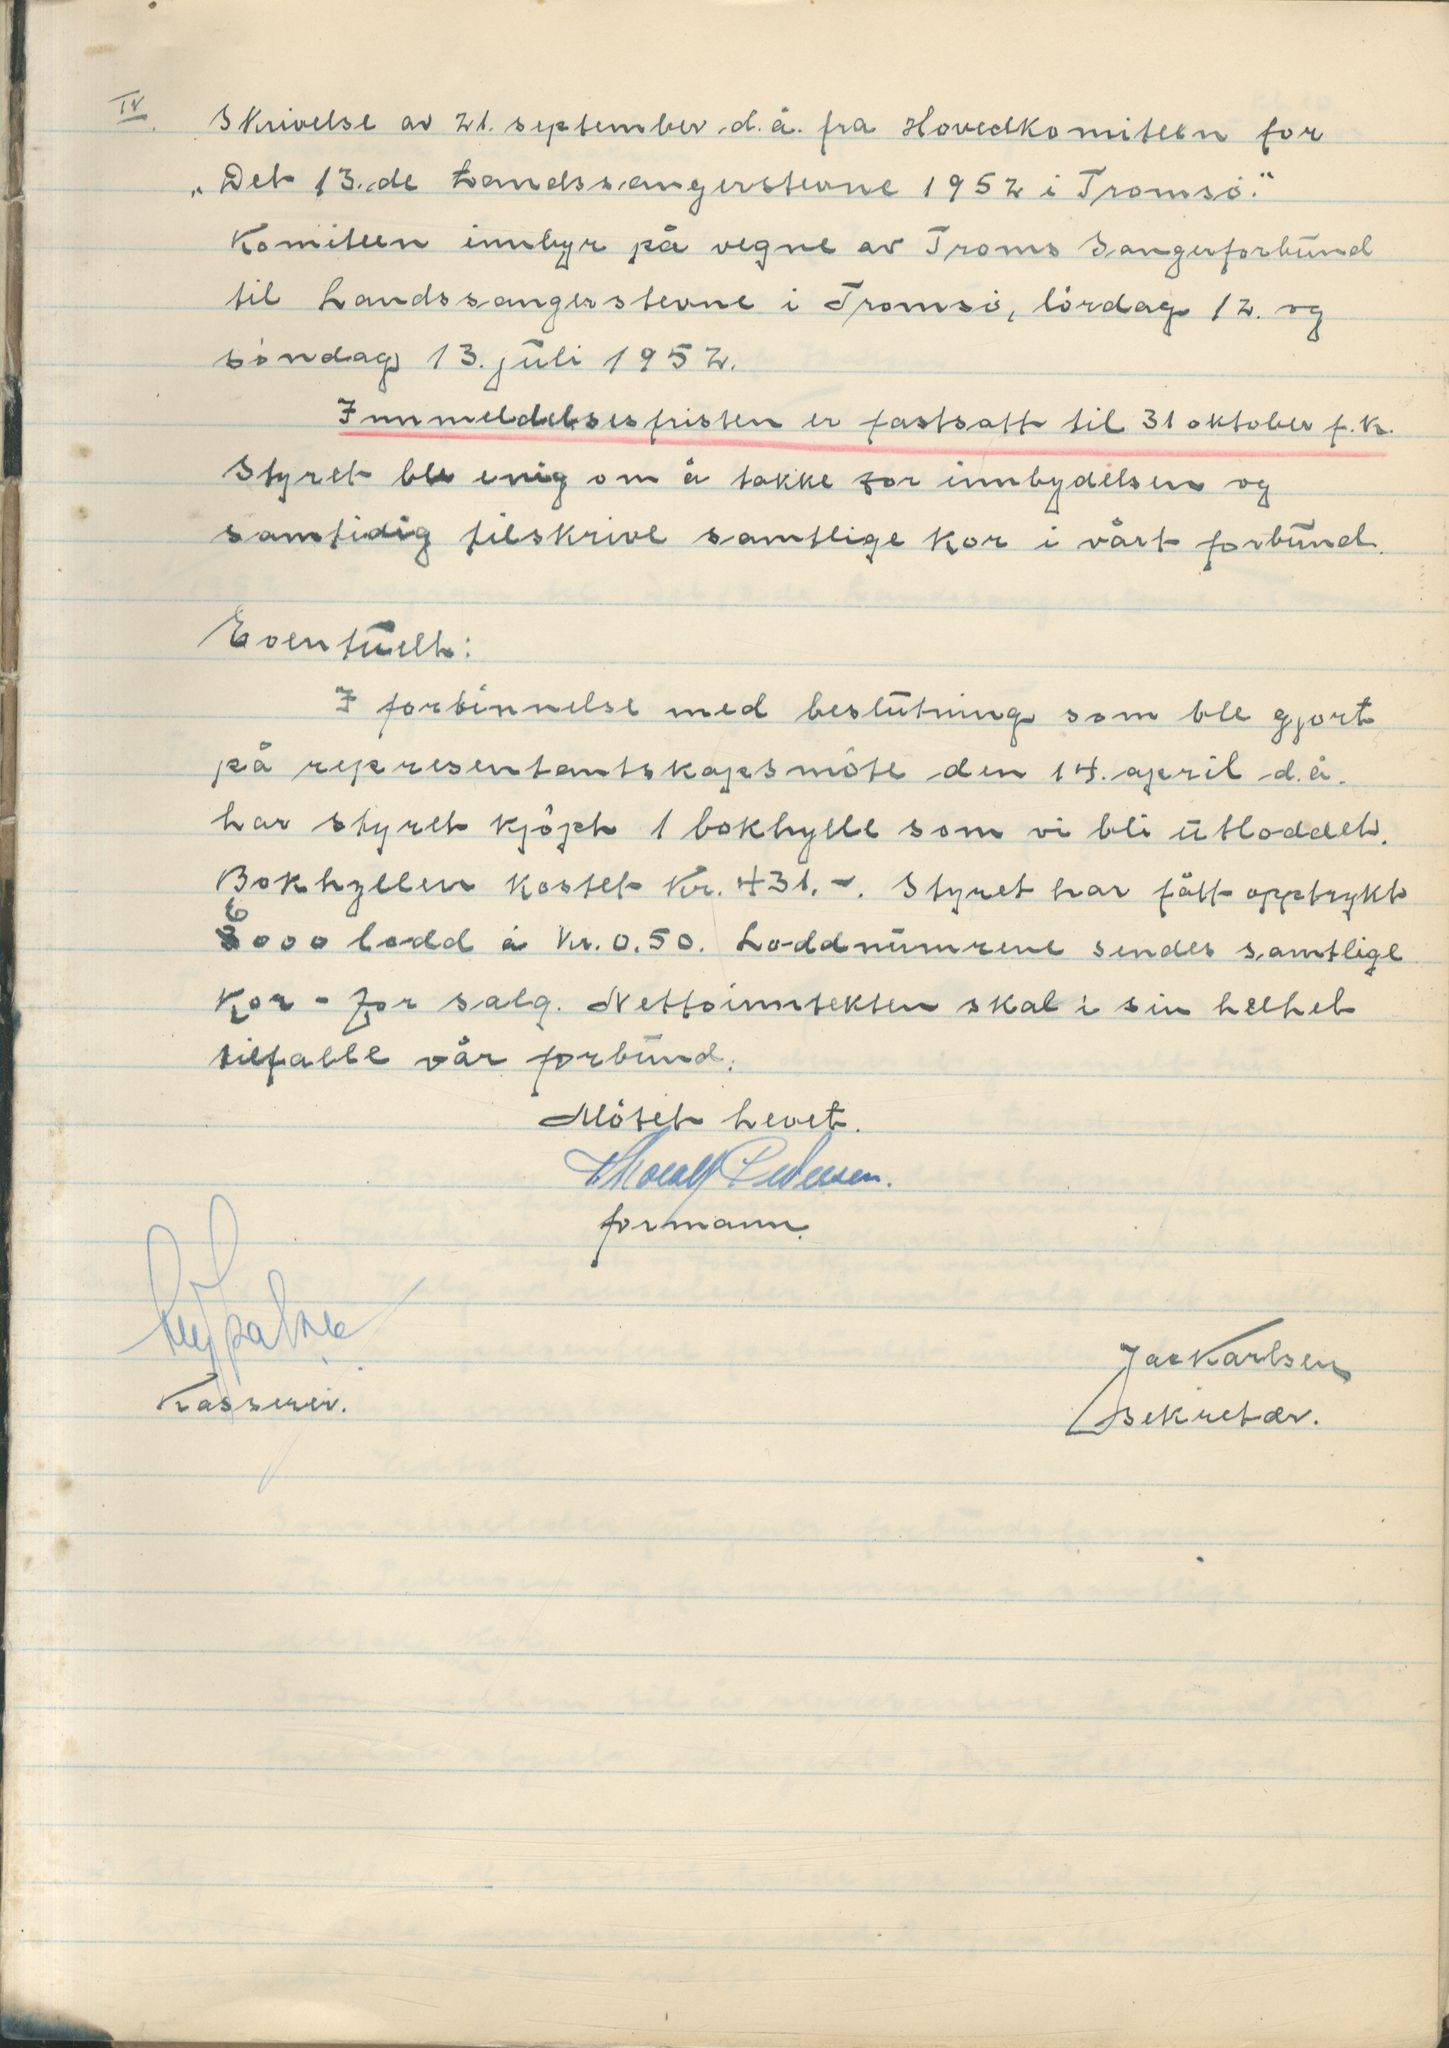 IV. Skrivelse av 21. september d.å. fra Hovedkomiteen for
„Det 13.de Landssangerstevne 1952 i Tromsö."
Komiteen innbyr på vegne av Troms Sangerforbund
til Landssangerstevne i Tromsö, lördag 12. og
söndag 13. juli 1952.
Innmeldelsesfristen er fastsatt til 31 oktober f.k.
Styret ble enig om å takke for innbydelsen og
samtidig tilskrive samtlige kor i vårt forbund.
Eventuelt:
I forbinnelse med beslutning som ble gjort
på representantskapsmöte den 14. april d.å.
har styret kjöpt 1 bokhylle som vi bli utloddet.
Bokhyllen kostet Kr. 431.-. Styret har fått opptrykt
6000 lodd á Kr. 0.50. Loddnumrene sendes samtlige
Kor - for salg. Nettoinntekten skal i sin helhet
tilfalle vår forbund.
Mötet hevet.
Thoralf Pedersen.
formann.
Jac Karlsen
Kasserer.
Sekretær.